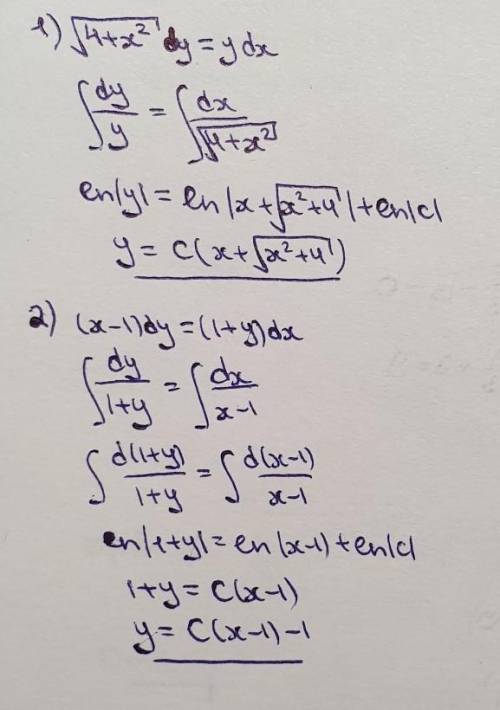 1) √(4+x²) dy = y dx
∫ dy/y = ∫ dx/√(4+x²)
ln|y| = ln|x+√(x²+4)| + ln|c|
y = C(x+√(x²+4))
2) (x-1)dy = (1+y)dx
∫ dy/(1+y) = ∫ dx/(x-1)
∫ d(1+y)/(1+y) = ∫ d(x-1)/(x-1)
ln|1+y| = ln|x-1| + ln|c|
1+y = C(x-1)
y = C(x-1)-1